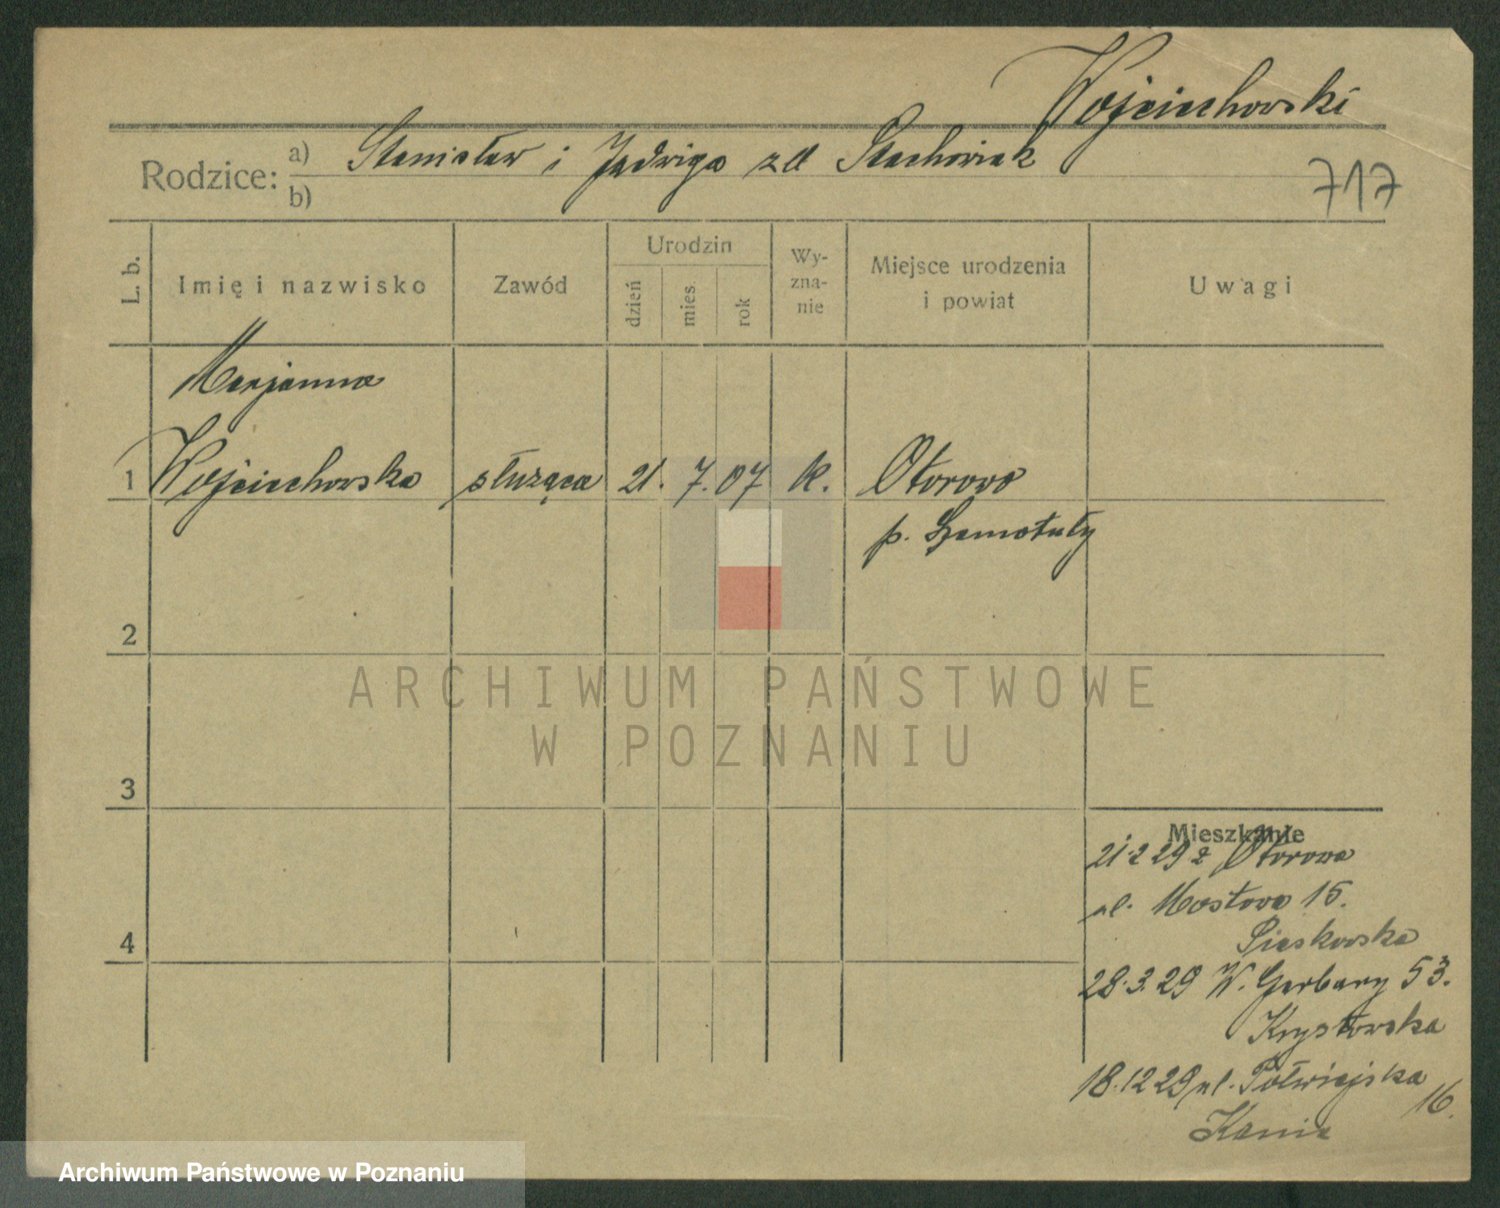 Wojciechowski
Rodzice: a) Stanisław i Jadwiga zd Stachowiak
b)
717
L. b.
Imię i nazwisko
Zawód
Urodzin
dzień
mies.
rok
Wy-
zna-
nie
Miejsce urodzenia
i powiat
Uwagi
Marjanna
1 Wojciechowska służąca 21. 7. 07 k. Otorowo
p. Szamotuły
2
ARCHIWUM PAŃSTWOWE
W POZNANIU
3
Mieszkanie
21·2 29 z Otorowa
ul. Mostowa 15.
Piaskowska
4
28.3.29 W. Garbary 53.
Krysłowska
18.12 29 ul. Półwiejska
16.
Kania
Archiwum Państwowe w Poznaniu